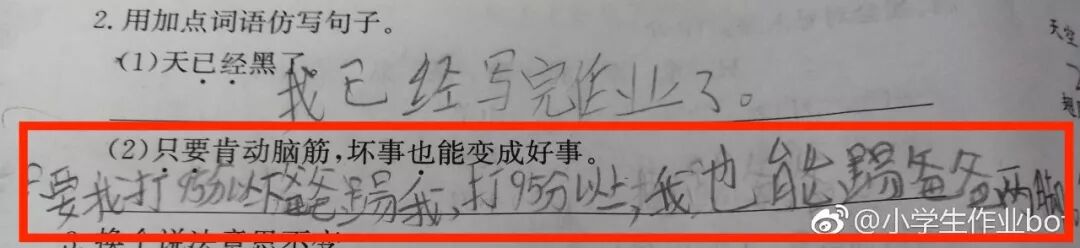 2. 用加点词语仿写句子。
天空
(1)天已经黑了。
我已经写完作业了。
(2)只要肯动脑筋,坏事也能变成好事。
要我打95分以下爸爸踢我,打95分以上,我也能踢爸爸两脚
@小学生作业bot